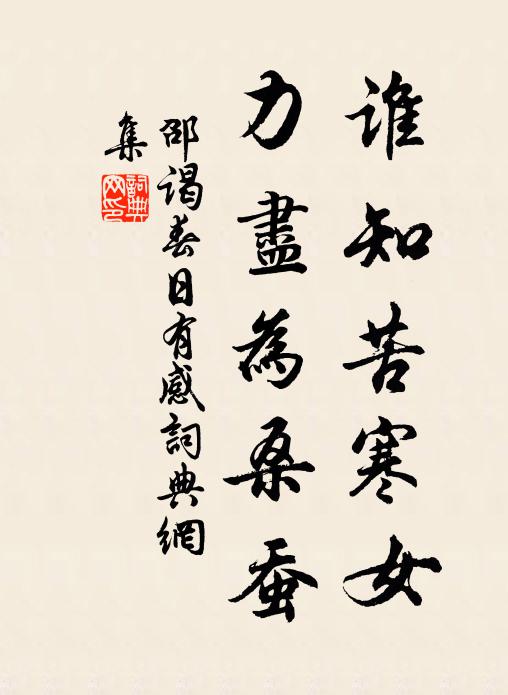 誰知苦寒女
力盡為桑蚕
邵謁春日有感詞典網
集
詞典网印